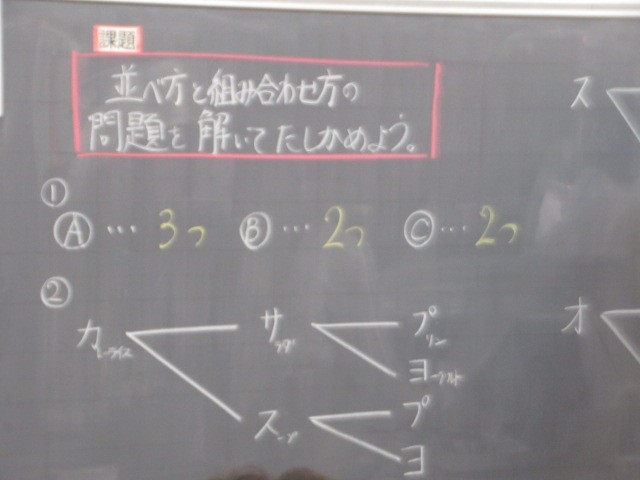 課題
並べ方と組み合わせ方の
問題を解いてたしかめよう。
①
Ⓐ … 3つ Ⓑ … 2つ Ⓒ … 2つ
②
カレーライス サラダ プリン
ヨーグルト
スープ プ
ヨ
ス
オ